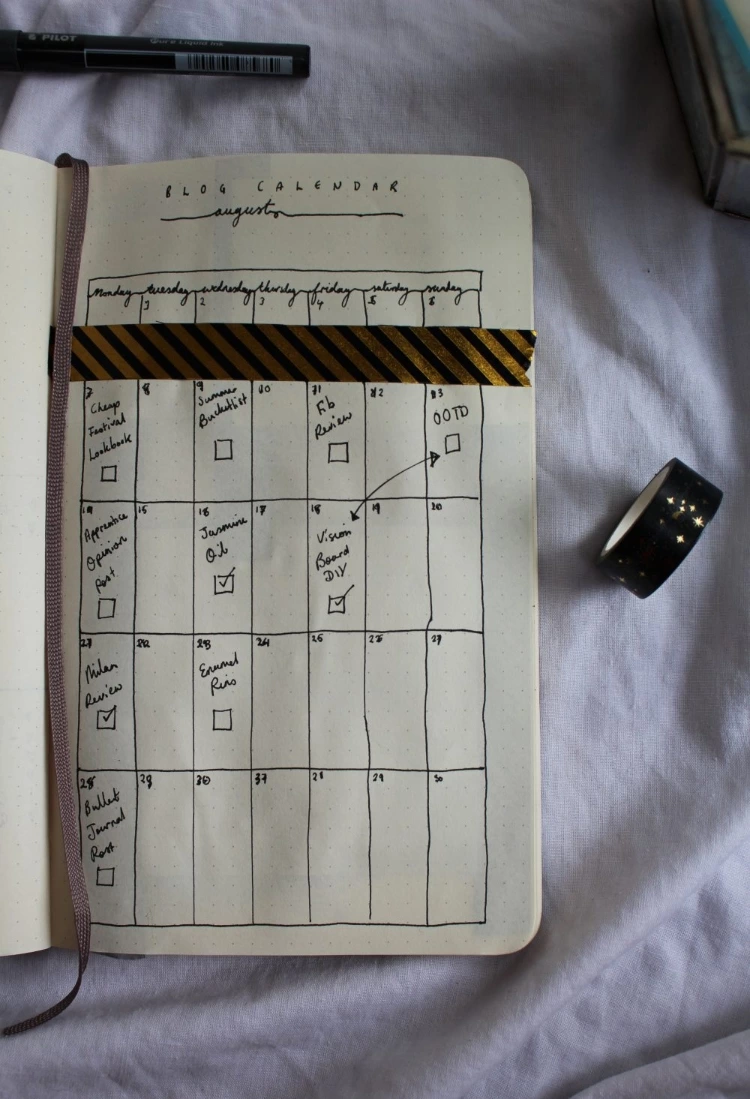 PILOT
Pure Liquid Ink
BLOG CALENDAR
august
Monday tuesday wednesday thursday friday saturday sunday
3 2 3 4 5 6
7 8 9 10 11 12 13
Cheap
Festival
Lookbook
Summer
Bucketlist
Fib
Review
OOTD
14 15 16 17 18 19 20
Apprentice
Opinion
Post
Jasmine
Oil
Vision
Board
DIY
21 22 23 24 25 26 27
Milan
Review
Enamel
Pins
28 29 30 31 28 29 30
Bullet
Journal
Post